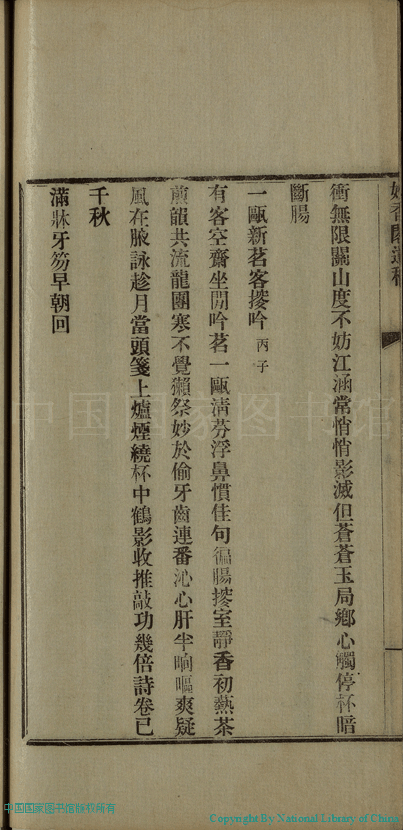 衝無限關山度不妨江涵常悄悄影滅但蒼蒼玉局鄉心觸停杯暗
斷腸
一甌新茗客搜吟 丙子
有客空齋坐閒吟茗一甌淸芬浮鼻慣佳句徧腸搜室靜香初熱茶
煎韻共流龍團寒不覺獺祭妙於偷牙齒連番沁心肝半晌嘔爽疑
風在腋詠趁月當頭箋上爐煙繞杯中鶴影收推敲功幾倍詩卷已
千秋
滿牀牙笏早朝回
中国国家图书馆
中国国家图书馆版权所有
Copyright By National Library of China